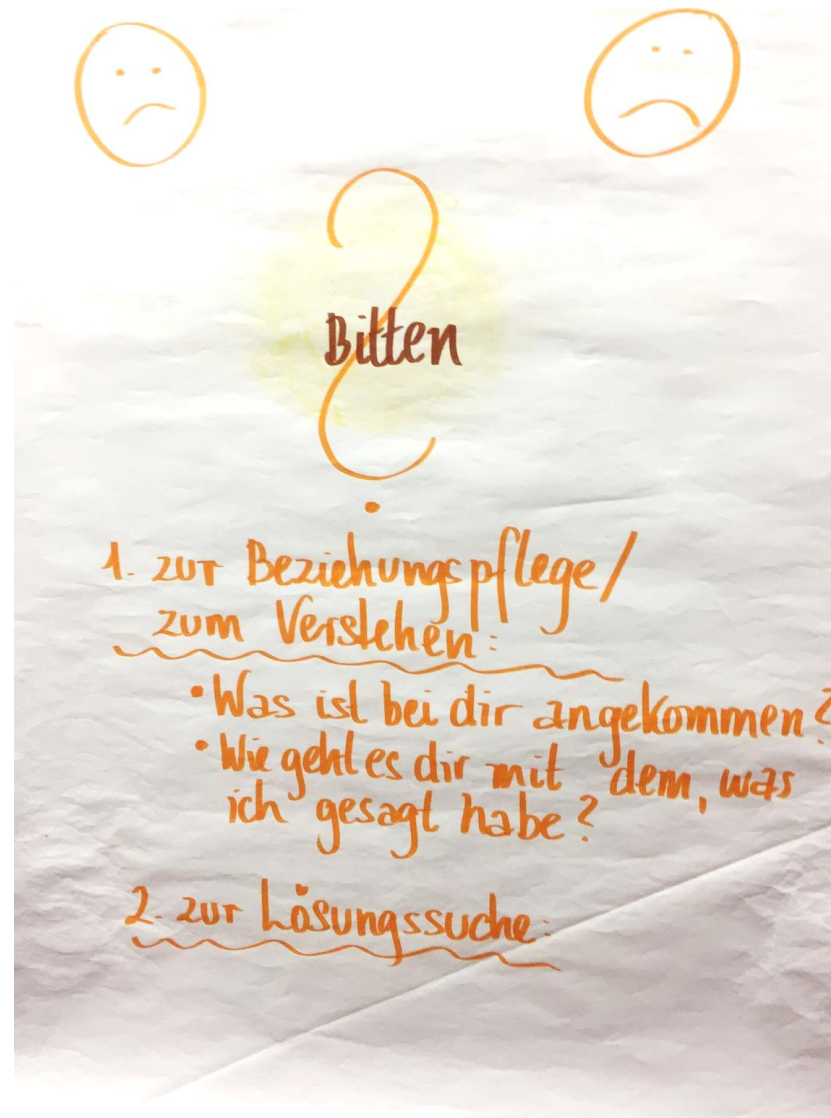 Bitten
1. zur Beziehungspflege/
zum Verstehen:
• Was ist bei dir angekommen?
• Wie geht es dir mit dem, was
ich gesagt habe?
2. zur Lösungssuche: